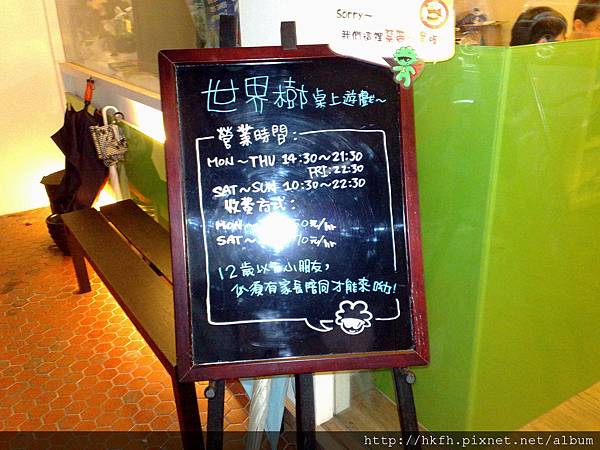 Sorry~
我們這裡禁帶
世界樹桌上遊戲~
營業時間:
MON~THU 14:30~21:30
FRI: 22:30
SAT~SUN 10:30~22:30
收費方式:
MON~ 50元/hr
SAT~ 70元/hr
12歲以下小朋友,
必須有家長陪同才能來呦!
http://hkfh.pixnet.net/album